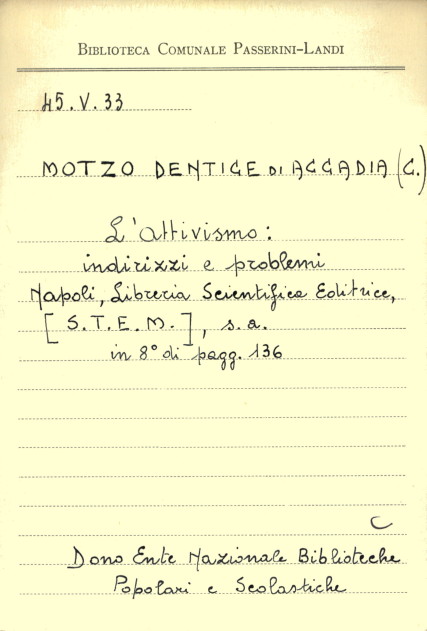 BIBLIOTECA COMUNALE PASSERINI-LANDI
45.V.33
MOTZO DENTICE DI ACCADIA (C.)
L'attivismo:
indirizzi e problemi
Napoli, Libreria Scientifica Editrice,
[S.T.E.M.], s.a.
in 8° di pagg. 136
C
Dono Ente Nazionale Biblioteche
Popolari e Scolastiche